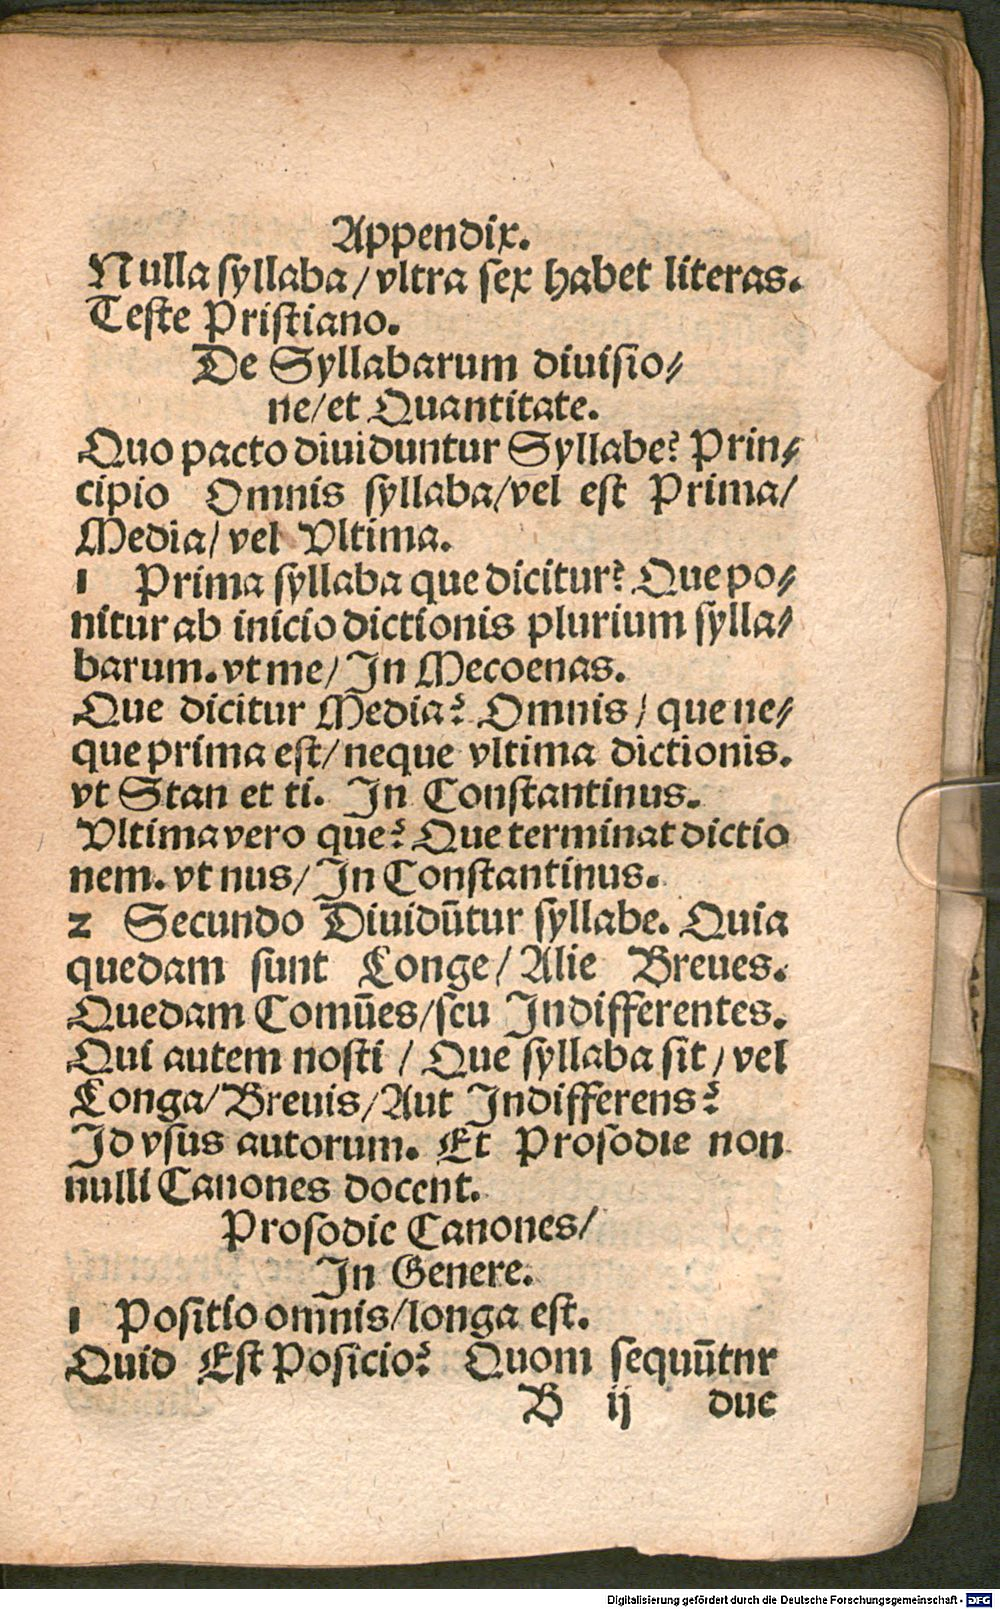 Appendix.
Nulla syllaba / vltra sex habet literas.
Teste Pristiano.
De Syllabarum diuisio⸗
ne/et Quantitate.
Quo pacto diuiduntur Syllabe? Prin⸗
cipio Omnis syllaba/vel est Prima/
Media/ vel Vltima.
1 Prima syllaba que dicitur? Que po⸗
nitur ab inicio dictionis plurium sylla⸗
barum. vt me/ In Mecoenas.
Que dicitur Media? Omnis / que ne⸗
que prima est/ neque vltima dictionis.
vt Stan et ti. In Constantinus.
Vltima vero que? Que terminat dictio
nem. vt nus/ In Constantinus.
2 Secundo Diuidūtur syllabe. Quia
quedam sunt Longe/ Alie Breues.
Quedam Comūes/seu Indifferentes.
Qui autem nosti / Que syllaba sit / vel
Longa/ Breuis/ Aut Indifferens?
Id vsus autorum. Et Prosodie non
nulli Canones docent.
Prosodie Canones/
In Genere.
1 Positio omnis/longa est.
Quid Est Posicio? Quom sequūtnr
B ij due
Digitalisierung gefördert durch die Deutsche Forschungsgemeinschaft - DFG